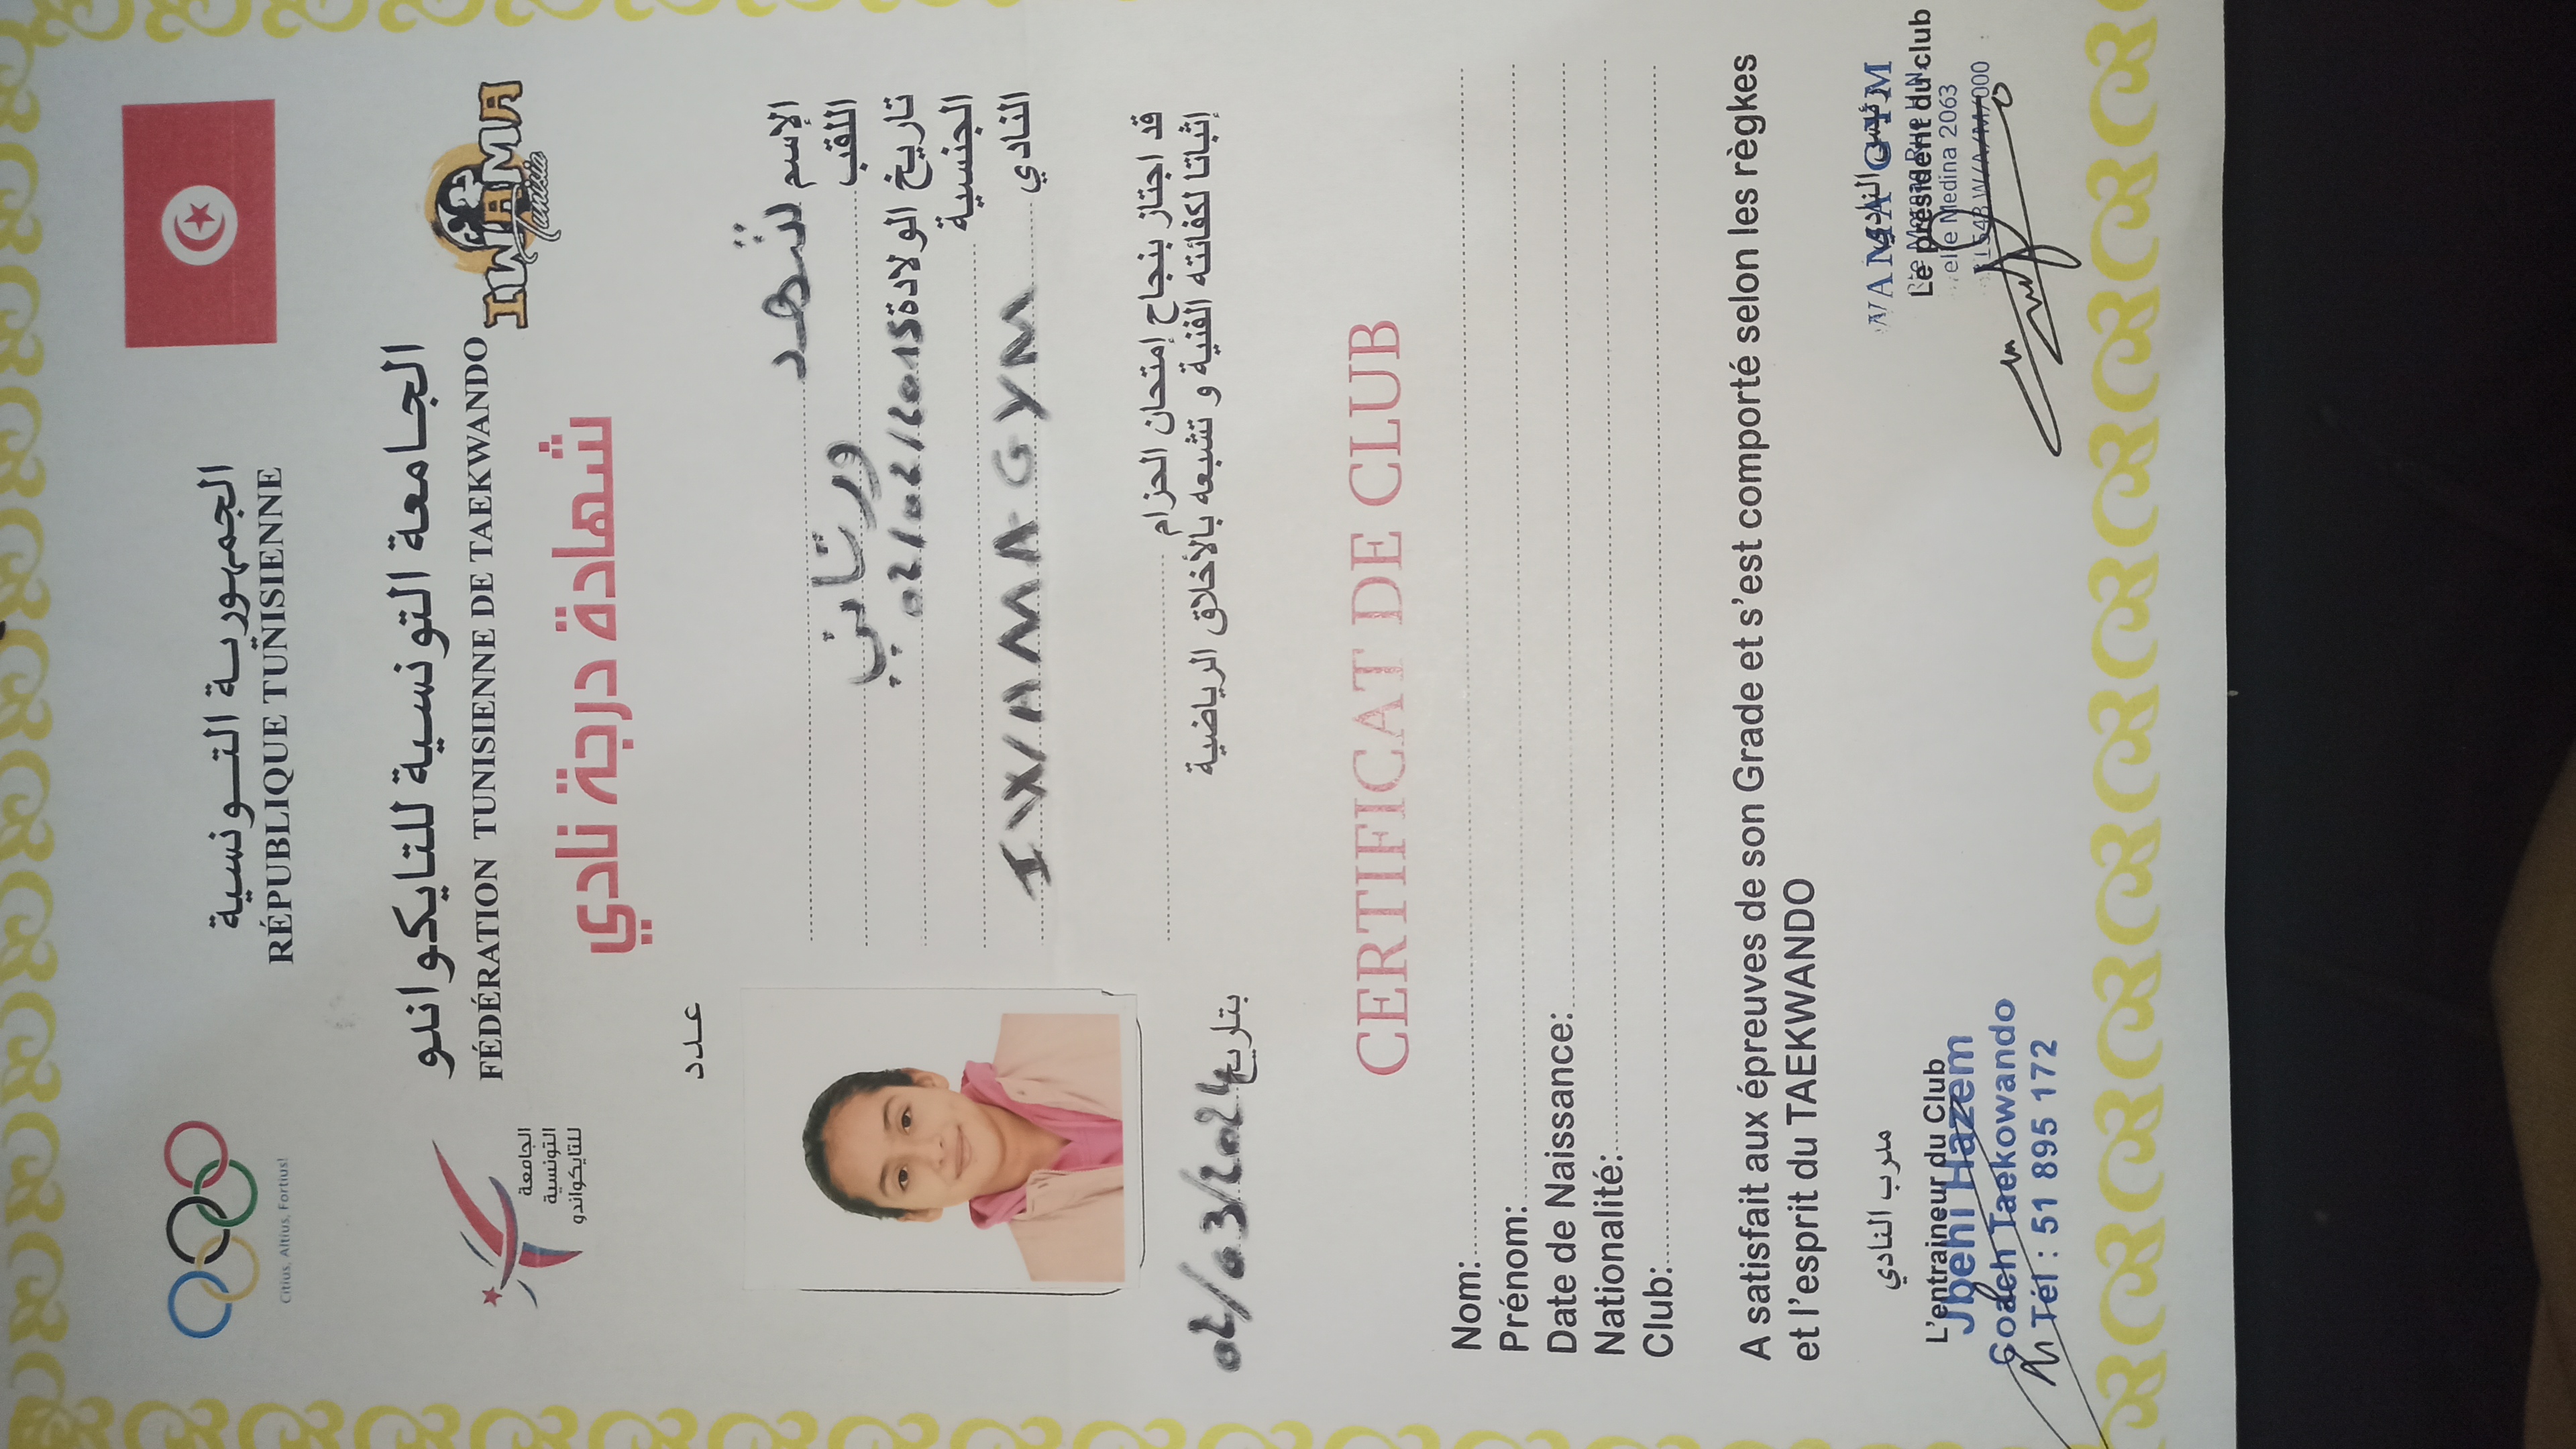 الجمهورية التونسية
RÉPUBLIQUE TUNISIENNE
Citius, Altius, Fortius!
الجامعة التونسية للتايكواندو
FÉDÉRATION TUNISIENNE DE TAEKWANDO
الجامعة
التونسية
للتايكواندو
IWAMA
Tunisia
شهادة درجة نادي
عدد
الإسم شهد
اللقب ورتاني
تاريخ الولادة 02/02/2015
الجنسية
النادي IWAMA GYM
قد اجتاز بنجاح إمتحان الحزام
إثباتا لكفائته الفنية و تشبعه بالأخلاق الرياضية
بتاريخ 02/03/2024
CERTIFICAT DE CLUB
Nom:
Prénom:
Date de Naissance:
Nationalité:
Club:
A satisfait aux épreuves de son Grade et s'est comporté selon les règkes
et l'esprit du TAEKWANDO
مدرب النادي
L'entraineur du Club
Jbehi Hazem
Coach Taekowando
Tél : 51 895 172
WAMA GYM
Le président du club
Medina 2063